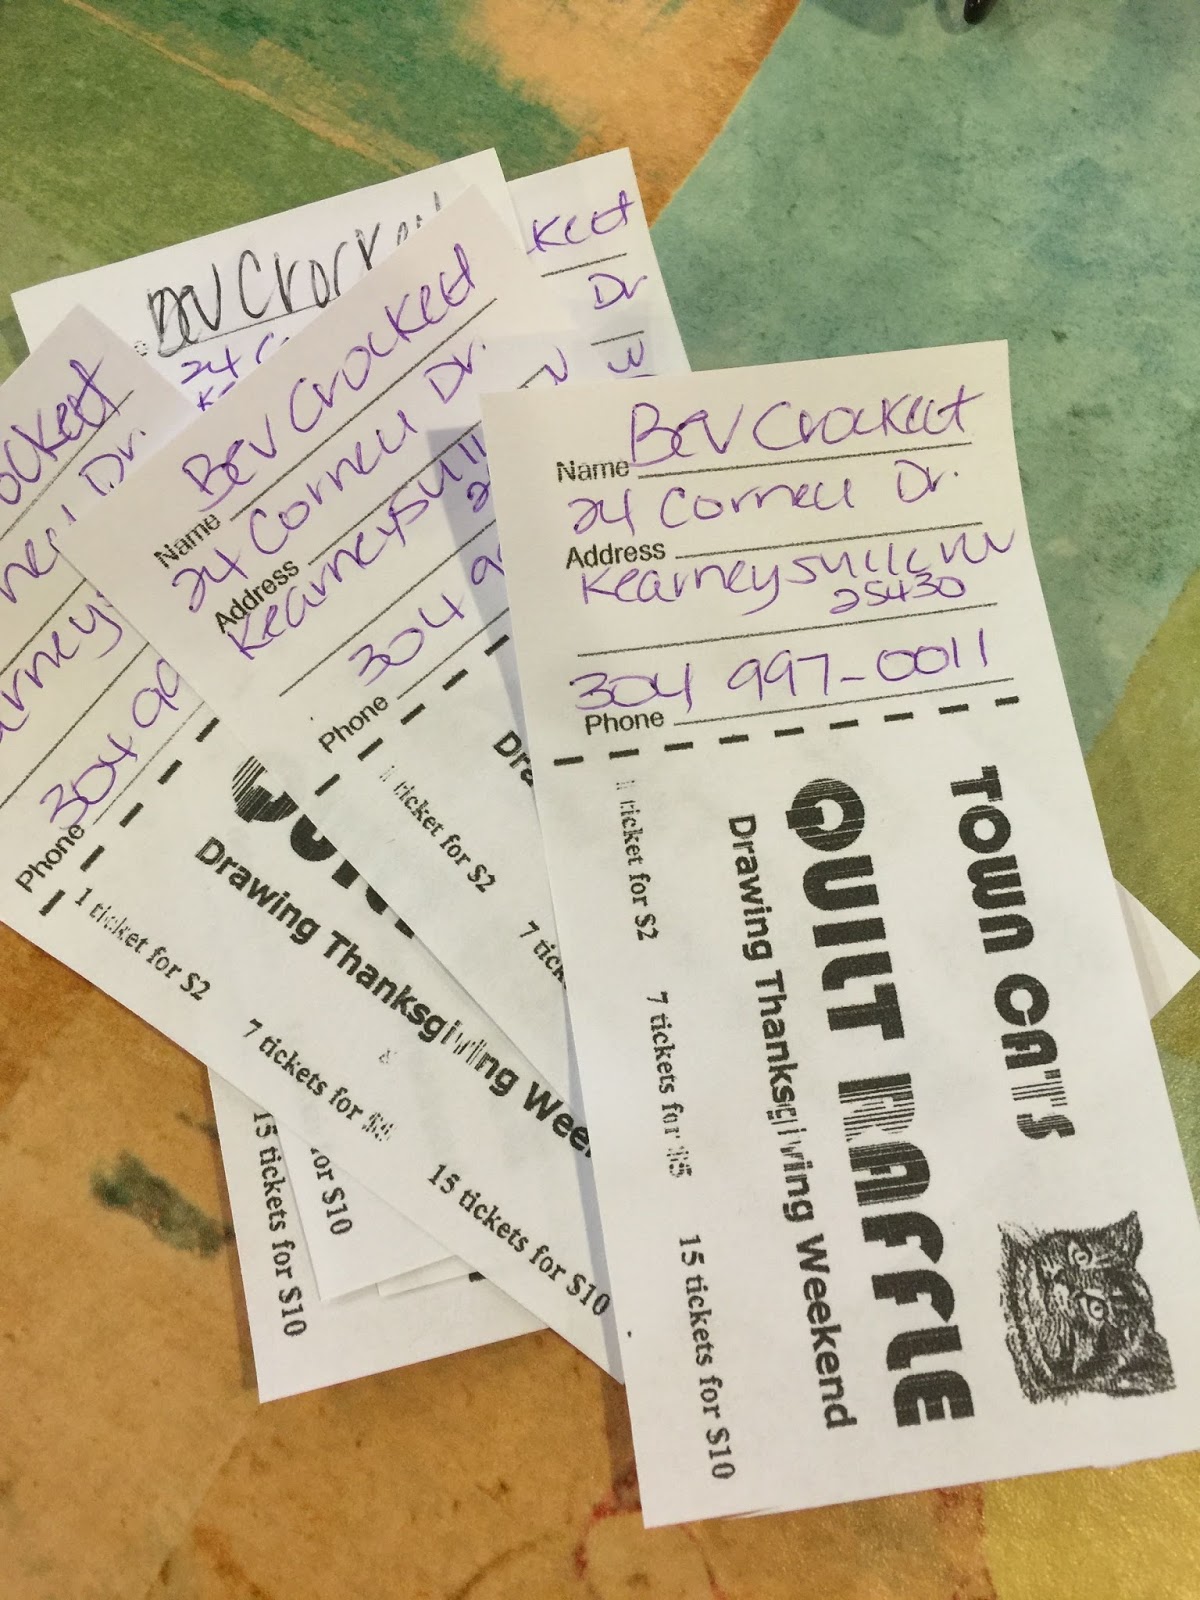 Bev Crockett
Name
24 Cornell Dr.
Address
Kearneysville WV
25430
304 997-0011
Phone
TOWN CAT'S
QUILT RAFFLE
Drawing Thanksgiving Weekend
1 ticket for $2 7 tickets for $5 15 tickets for $10
Bev Crockett
Name
24 Cornell Dr.
Address
Kearneysvill
304 9
Phone
1 ticket for $2
7 tick
Dra
Bev Crocke
24 C
ckett
Dr
W
ockett
Dr.
arney
304 99
Phone
Drawing Thanksgiving Wee
1 ticket for $2 7 tickets for $5 15 tickets for $10
for $10
15 tickets for $10